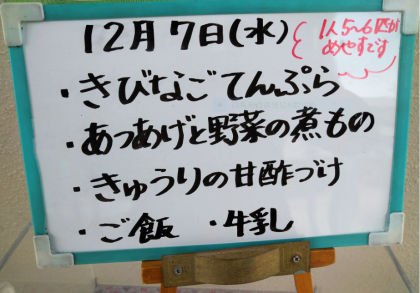 12月7日(水)
1人5~6匹が
めやすです
・きびなごてんぷら
・あつあげと野菜の煮もの
・きゅうりの甘酢づけ
・ご飯 ・牛乳